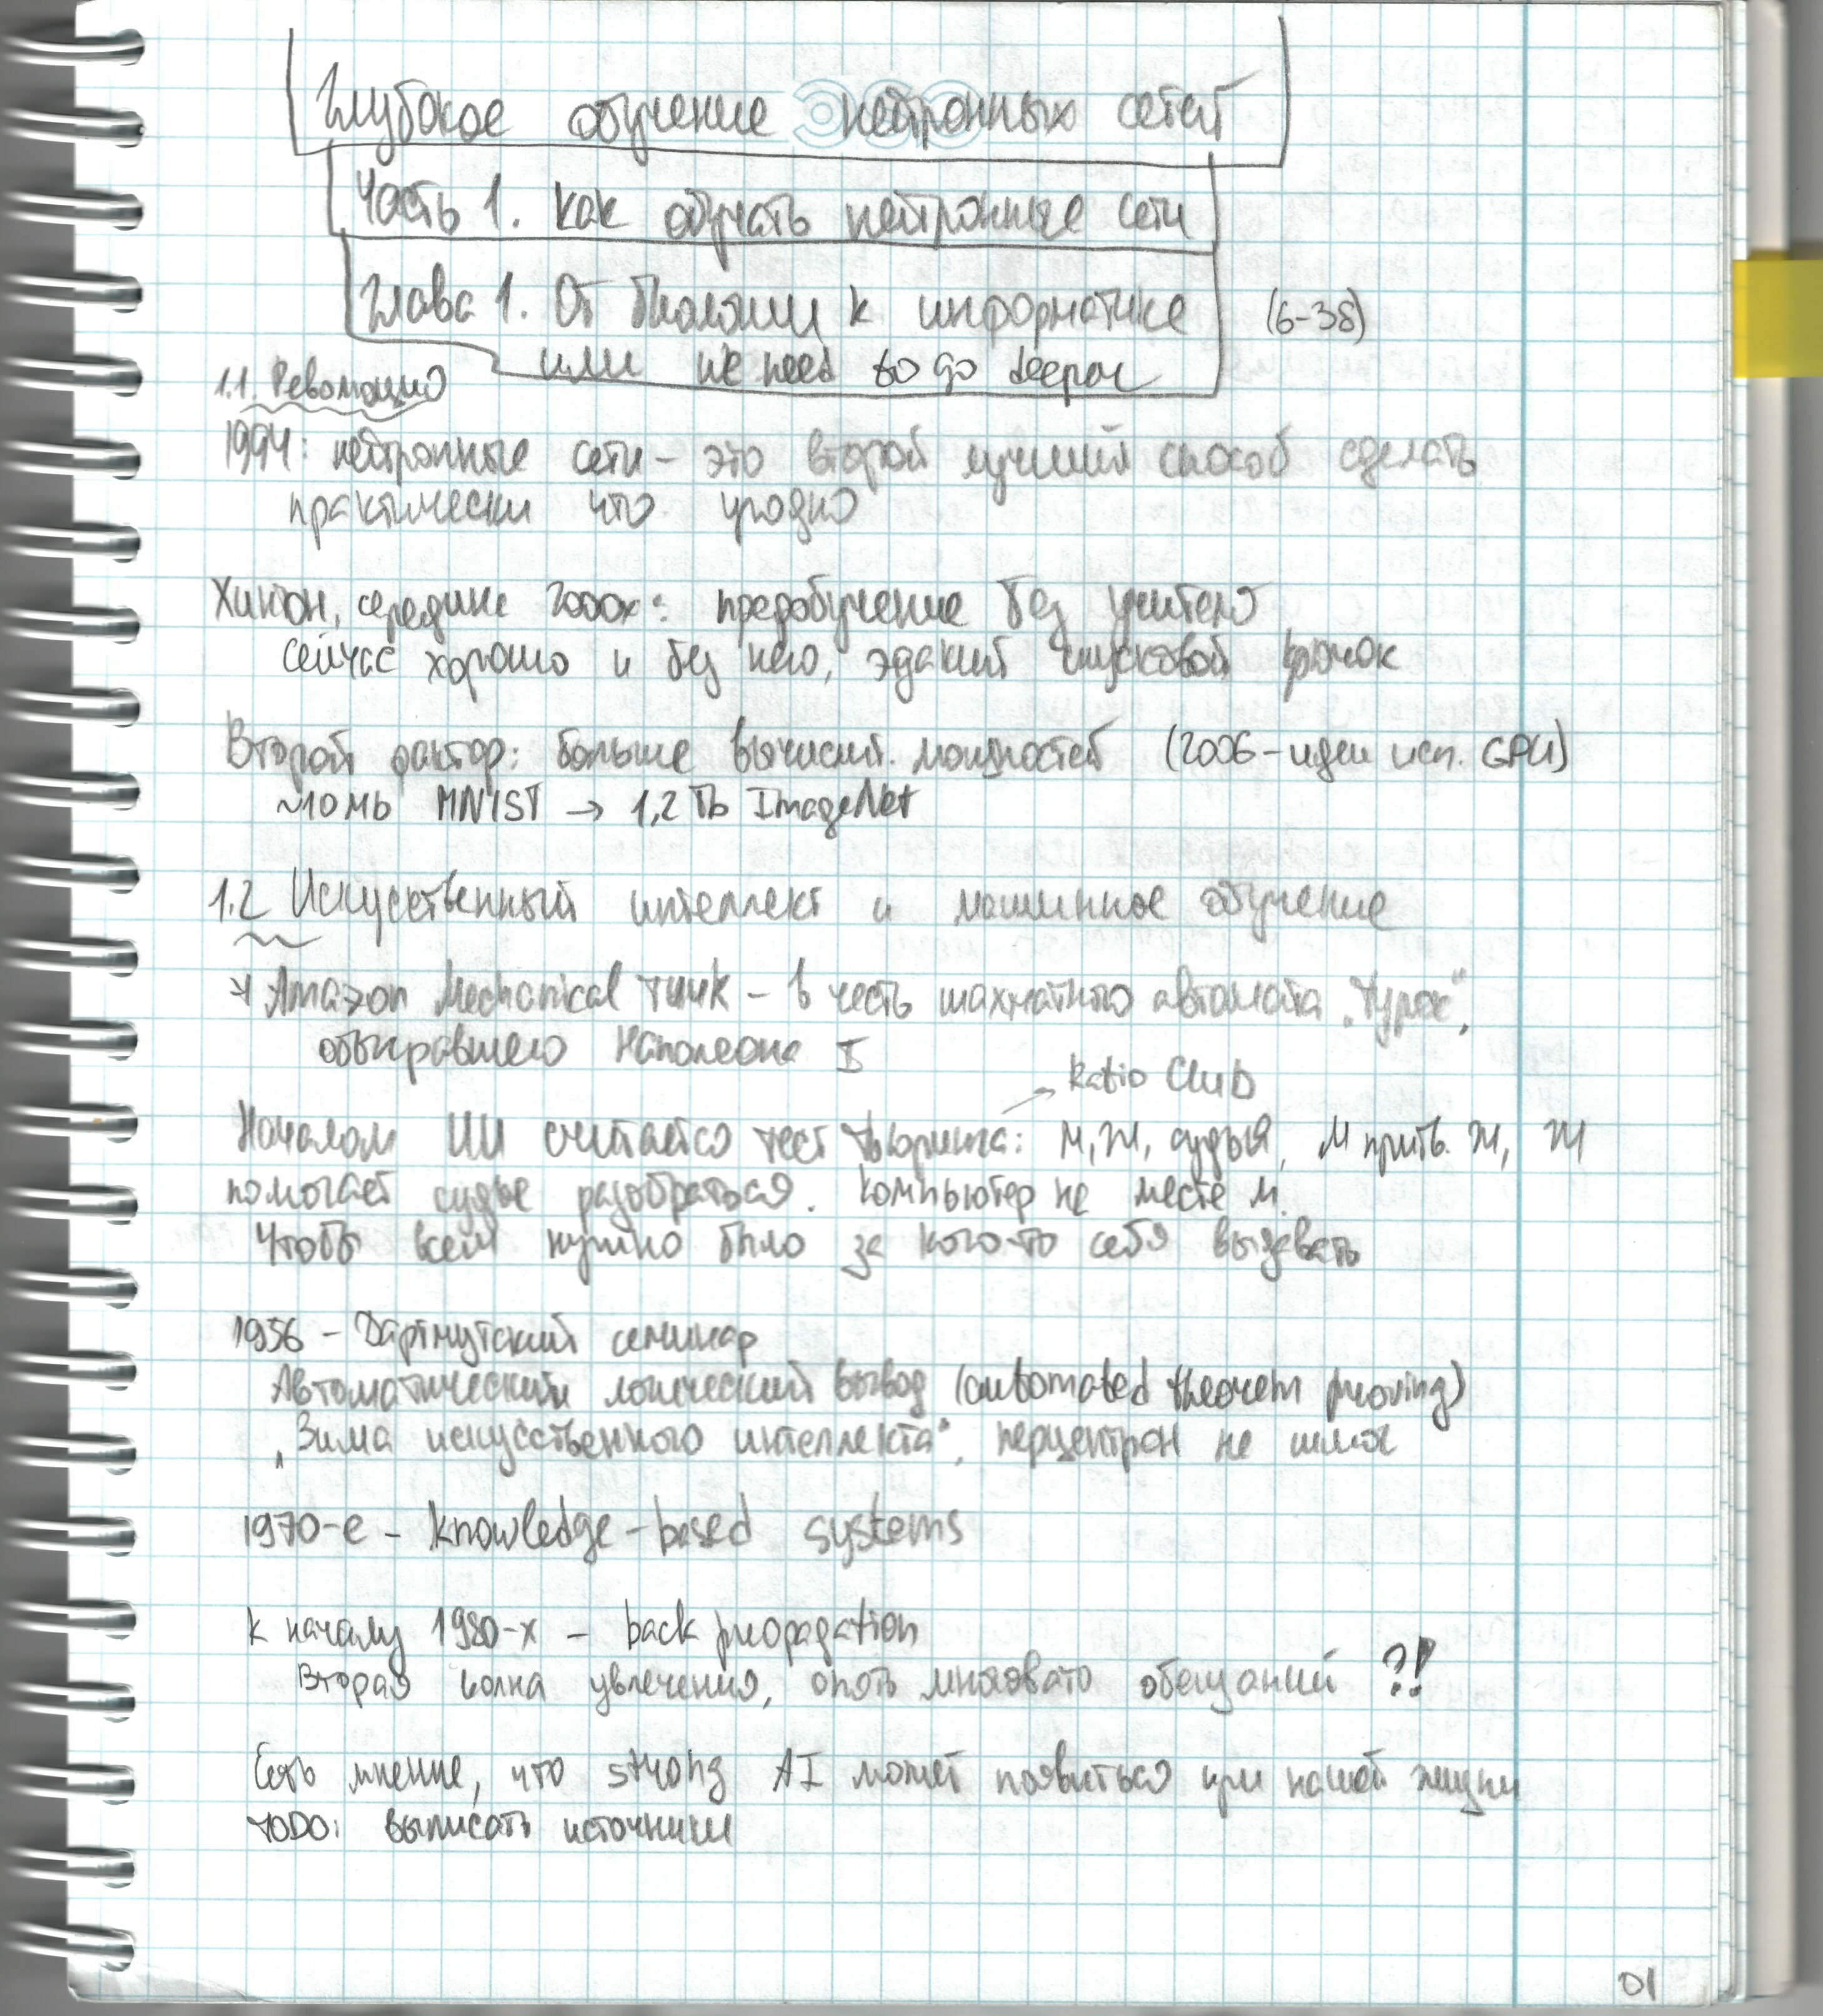 Глубокое обучение нейронных сетей
Часть 1. Как обучать нейронные сети
Глава 1. От биологии к информатике (6-38)
или we need to go deeper
1.1. Революция
1994: нейронные сети – это второй лучший способ сделать
практически что угодно
Хинтон, середина 2000х: предобучение без учителя
сейчас хорошо и без него, эдакий спусковой крючок
Второй фактор: больше вычислит. мощностей (2006 – идеи исп. GPU)
~10 Мб MNIST → 1,2 Тб ImageNet
1.2 Искуственный интеллект и машинное обучение
→ Amazon Mechanical Turk – в честь шахматного автомата „Турок“,
обыгравшего Наполеона I
→ Ratio Club
Началом ИИ считается тест Тьюринга: М, Ж, судья, М притв. Ж, Ж
помогает судье разобраться. Компьютер на месте М.
Чтобы всем нужно было за кого-то себя выдавать
1956 – Дартмутский семинар
Автоматический логический вывод (automated theorem proving)
„Зима искусственного интеллекта“, перцептрон не шмог
1970-е – knowledge-based systems
К началу 1980-х – back propagation
Вторая волна увлечения, опять многовато обещаний ?!
Есть мнение, что strong AI может появиться при нашей жизни
TODO: выписать источники
01